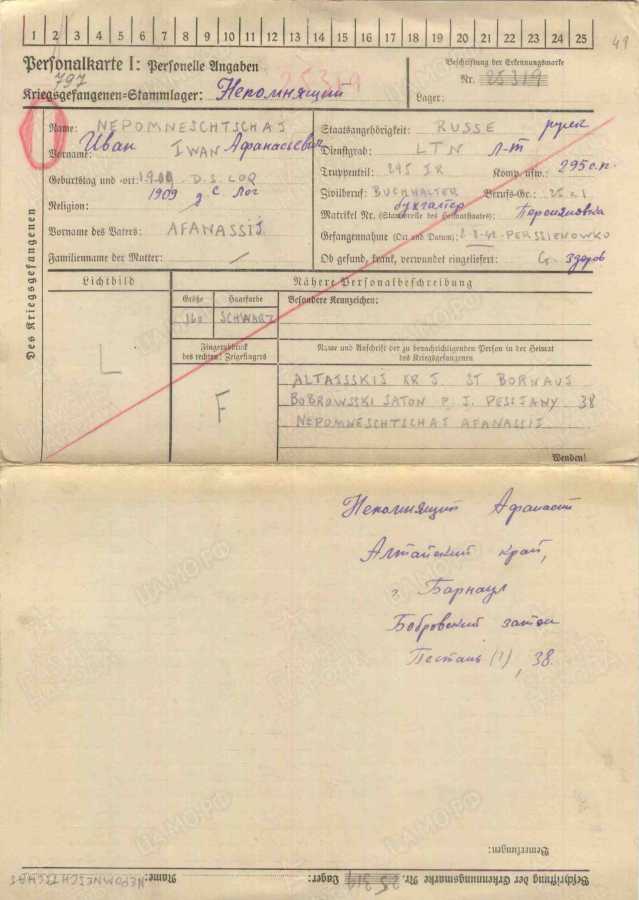 1 2 3 4 5 6 7 8 9 10 11 12 13 14 15 16 17 18 19 20 21 22 23 24 25
49
Personalkarte I: Personelle Angaben
Beschriftung der Erkennungsmarke
797
25319
Nr. 25319
Kriegsgefangenen-Stammlager: Непомнящий
Lager:
Des Kriegsgefangenen
Name: NEPOMNESCHTSCHAJ
Vorname: Иван IWAN Афанасьевич
Geburtstag und -ort: 1909 D.S. LOQ
1909 д с Лог
Religion: /
Vorname des Vaters: AFANASSIJ
Familienname der Mutter: /
Staatsangehörigkeit: RUSSE русск
Dienstgrad: LTN Л-т
Truppenteil: 295 IR Komp. usw.: 295 с.п.
Zivilberuf: BUCHHALTER Berufs-Gr.: 25 c 1
бухгалтер
Matrikel Nr. (Stammrolle des Heimatstaates): Персияновка
Gefangennahme (Ort und Datum): PERSSIENOWKO
Ob gesund, krank, verwundet eingeliefert: G. здоров
Lichtbild
L
Nähere Personalbeschreibung
Größe Haarfarbe Besondere Kennzeichen:
160 SCHWARZ
Fingerabdruck
des rechten Zeigefingers
F
Name und Anschrift der zu benachrichtigenden Person in der Heimat
des Kriegsgefangenen
ALTAJSSKIJ KR J. ST BORNAUS
BOBROWSSKI SATON P. J. PESTJANY 38
NEPOMNESCHTSCHAJ AFANASSIJ
Wenden!
Непомнящий Афанасий
Алтайский край,
г. Барнаул
Бобровский затон
Пестань (?), 38.
Bemerkungen:
Beschriftung der Erkennungsmarke Nr. 25319 Lager:
Name: NEPOMNESCHTSCHAJ
ЦАМО.РФ